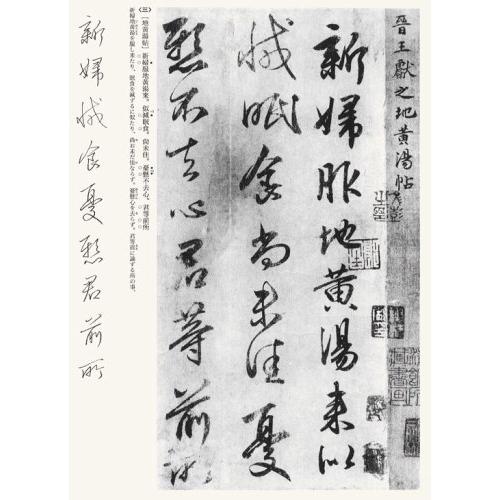 晉王獻之地黃湯帖
新婦服地黃湯来似
減眠食尚未佳憂
懸不去心君等前所
〈三〉
〔地黄湯帖〕新婦服地黄湯来。似減眠食。尚未佳。憂懸不去心。君等前所
新婦地黄湯を服し来たり、眠食を減ずるに似たり、尚お未だ佳ならず。憂懸心を去らず。君等前に論ずる所の事、
新婦減食憂懸君前所